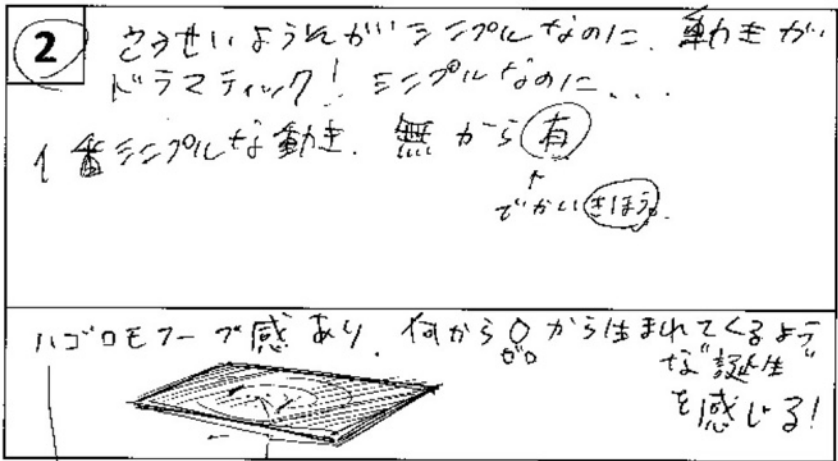 2
こうせいようそがシンプルなのに、動きが
ドラマティック! シンプルなのに...
1番シンプルな動き、無から有
↑
でかいきほう。
ハゴロモフーブ感あり、何から0から生まれてくるよう
ゼロ
な"誕生"
を感じる!